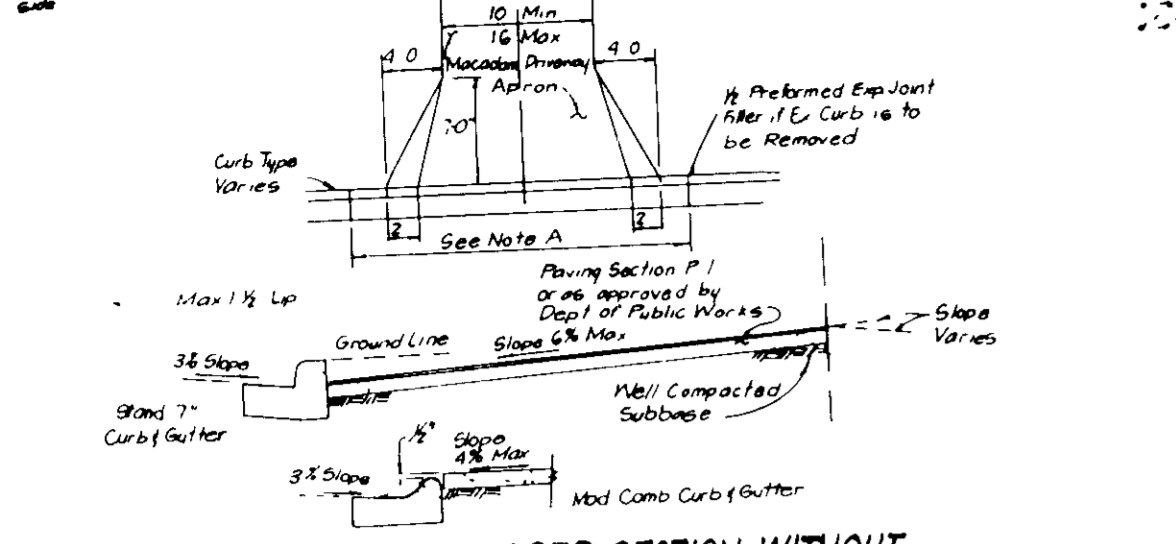 Side
10 Min
16 Max
4 0
4 0
Macadam Driveway
Apron
1/2 Preformed Exp Joint
Filler if Ex Curb is to
be Removed
Curb Type
Varies
2
2
See Note A
Paving Section P 1
or as approved by
Dept of Public Works
Max 1 1/2 Lip
Slope
Varies
Ground Line
Slope 6% Max
3% Slope
Well Compacted
Subbase
Stand 7"
Curb & Gutter
1/2"
Slope
4% Max
3% Slope
Mod Comb Curb & Gutter
SECTION WITHOUT